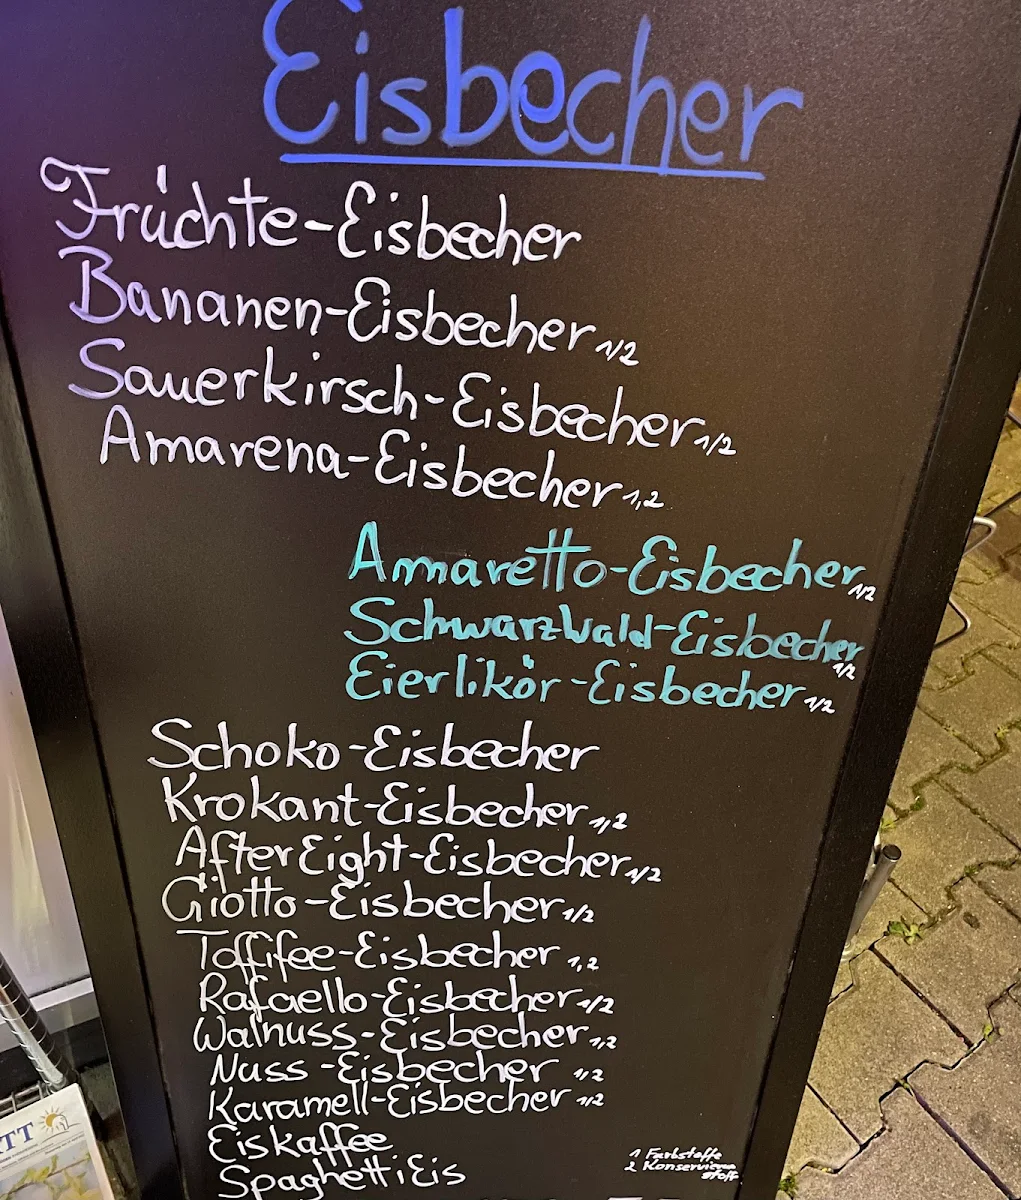 Eisbecher
Früchte-Eisbecher
Bananen-Eisbecher 1/2
Sauerkirsch-Eisbecher 1/2
Amarena-Eisbecher 1,2
Amaretto-Eisbecher 1/2
Schwarzwald-Eisbecher 1/2
Eierlikör-Eisbecher 1/2
Schoko-Eisbecher
Krokant-Eisbecher 1,2
After Eight-Eisbecher 1/2
Giotto-Eisbecher 1/2
Toffifee-Eisbecher 1,2
Rafaello-Eisbecher 1/2
Walnuss-Eisbecher 1,2
Nuss-Eisbecher 1/2
Karamell-Eisbecher 1/2
Eiskaffee
SpaghettiEis
1 Farbstoffe
2 Konservierungs
stoff
TT